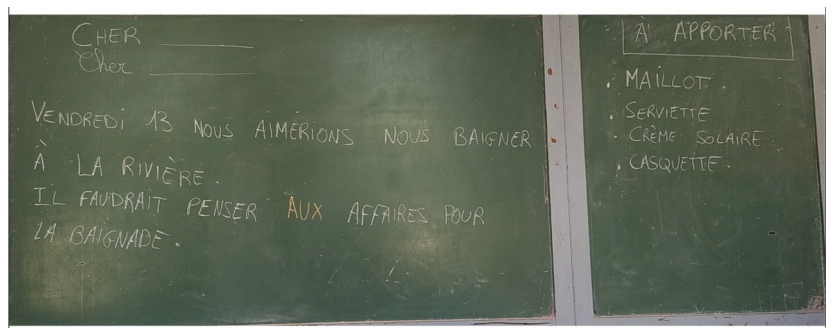 CHER ____________
Cher ____________
VENDREDI 13 NOUS AIMERIONS NOUS BAIGNER
À LA RIVIÈRE.
IL FAUDRAIT PENSER AUX AFFAIRES POUR
LA BAIGNADE.
À APPORTER
. MAILLOT.
. SERVIETTE
. CRÈME SOLAIRE
. CASQUETTE.